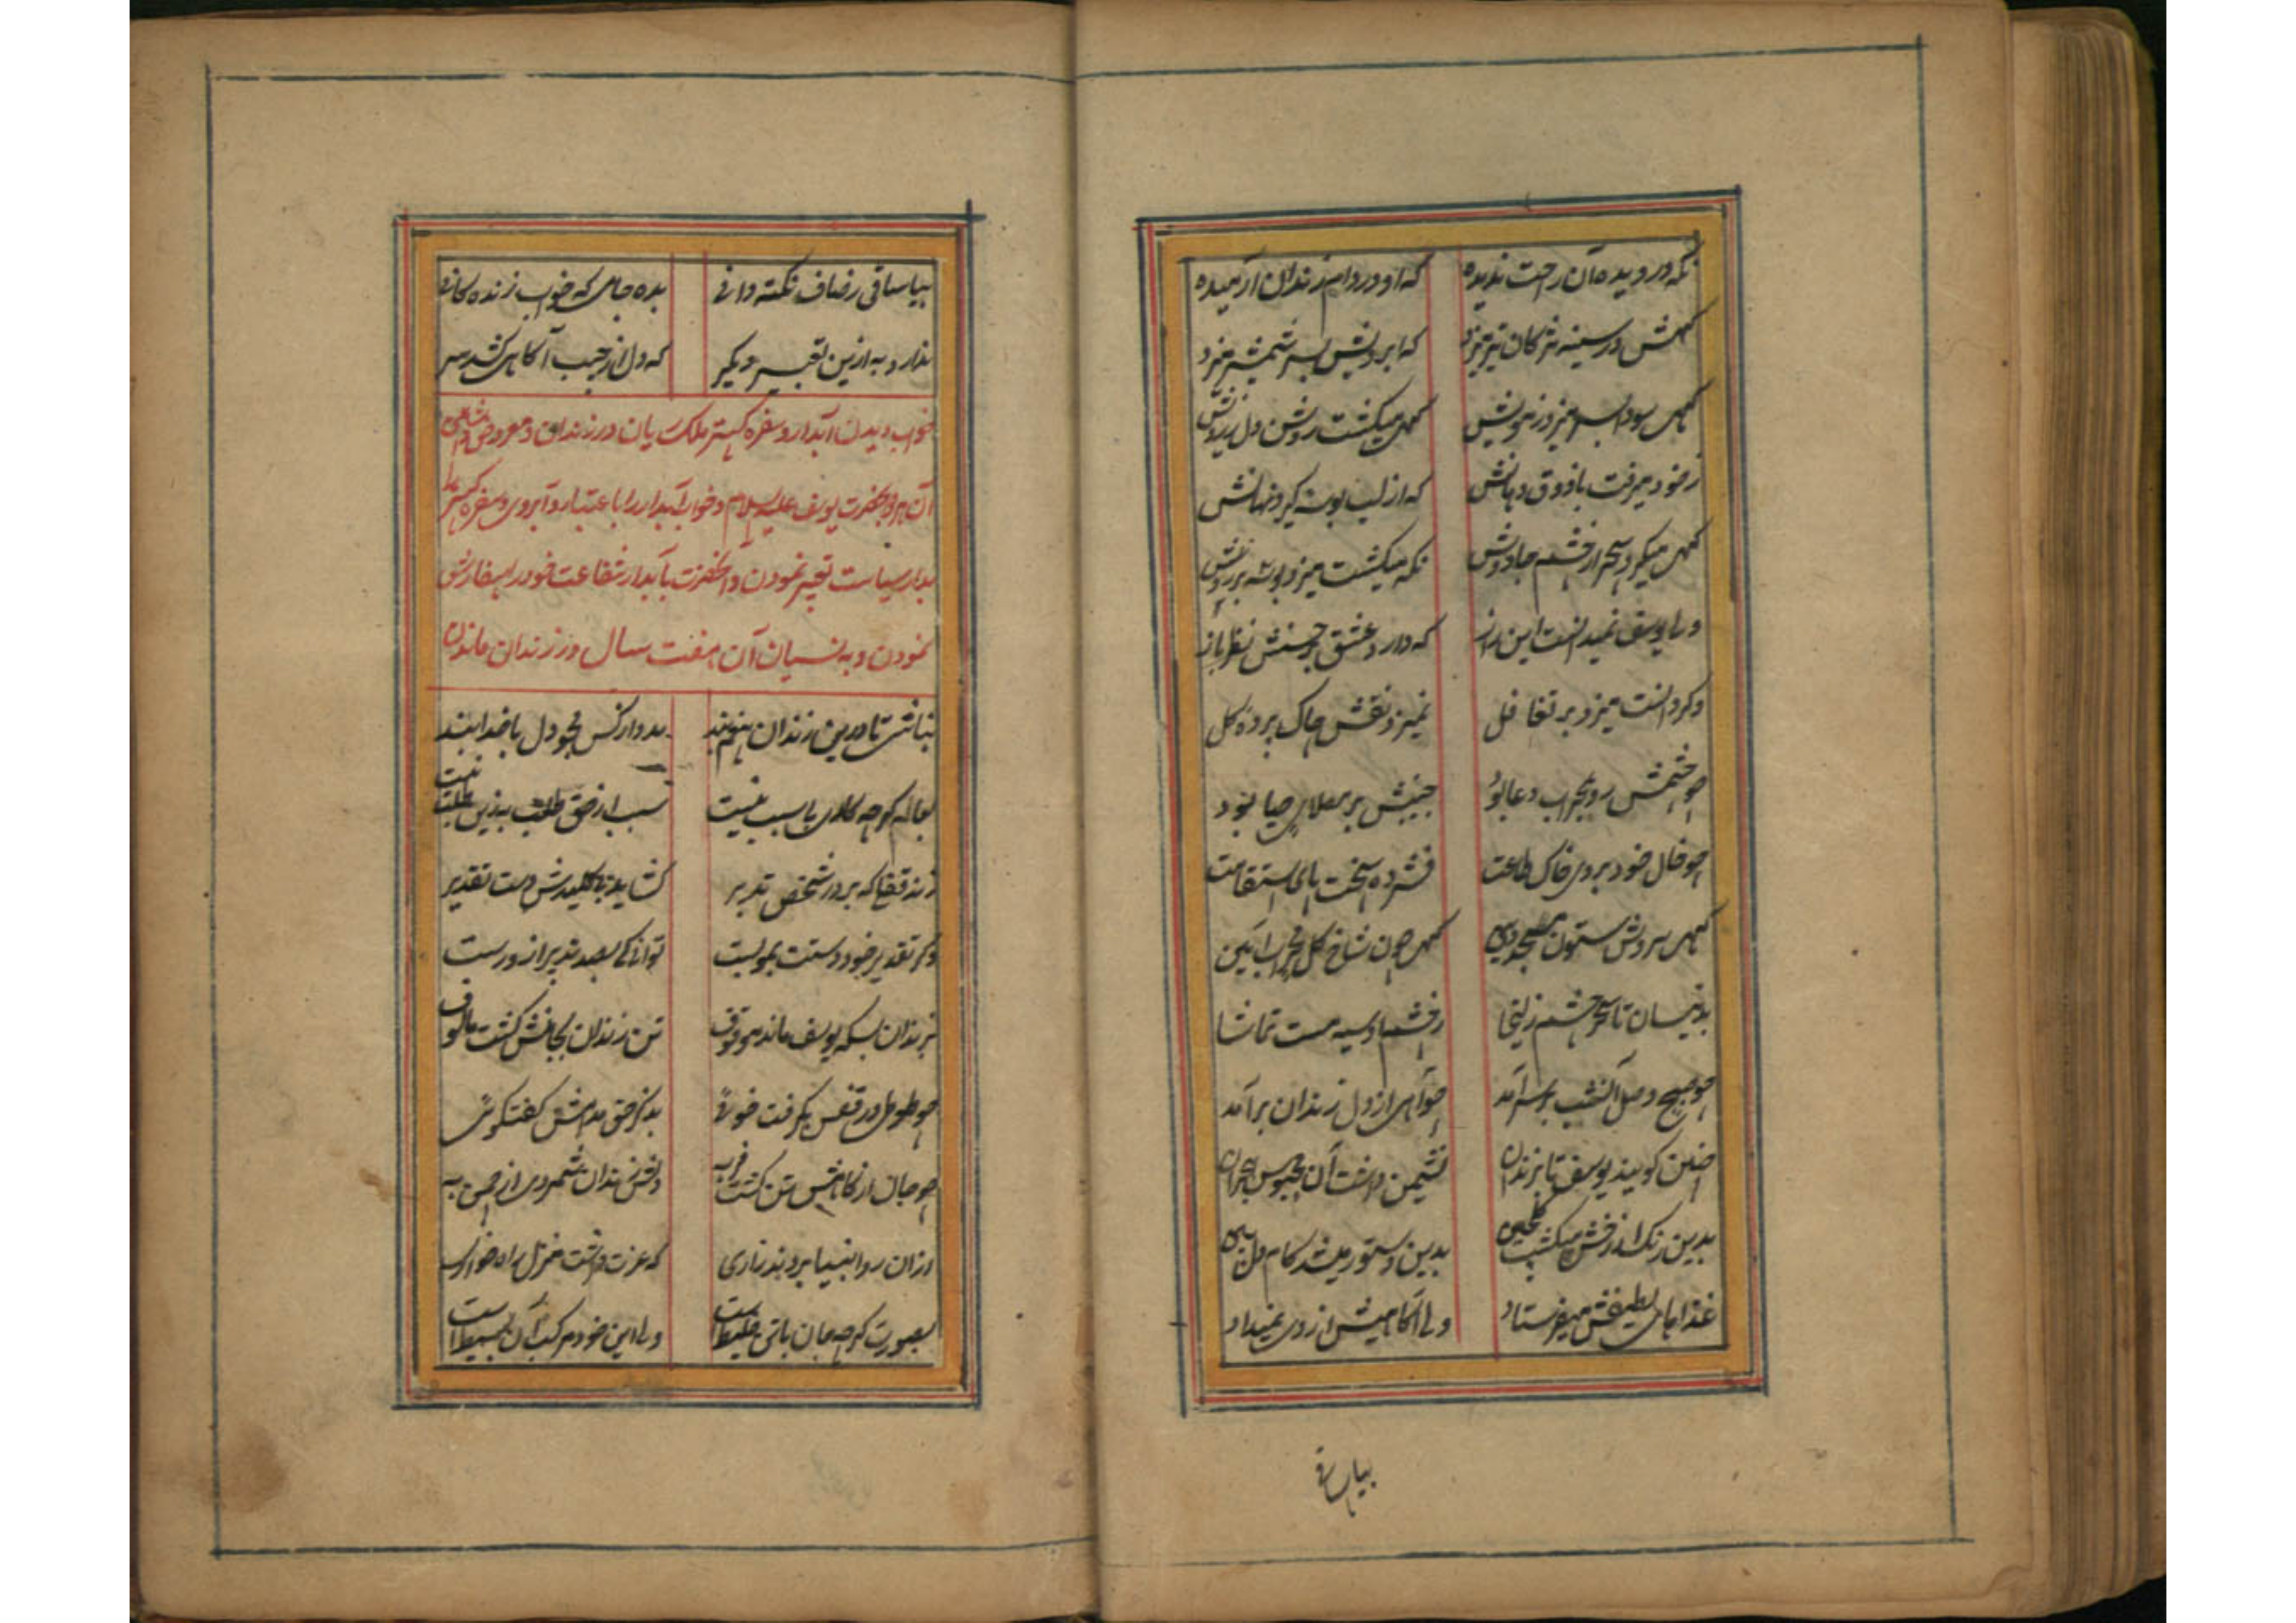 نگه در دیده آن راحت ندیده که او در دام زندان آرمیده
گهش در سینه مژگان تیر میزد که ابرویش بسر شمشیر میزد
گهی سودا بسر میزد ز مویش گهی میگشت روشن دل ز رویش
ز خود میرفت با ذوق دهانش که از لب بوسه گیرد نهانش
گهی میکرد سحر از چشم جادوش نگه میگشت میزد بوسه بر روش
ولی یوسف نمیدانست این راز که دارد عشق بر حسنش نظرباز
وگر دانست میزد بر تغافل نمیزد نقش چاک پرده گل
چو چشمش رو بمحراب دعا بود جبینش بر مصلای حیا بود
چو خال خود بروی خاک طاعت فشرده سخت پای استقامت
گهی سروش ستون مسجد دین گهی چون شاخ گل محراب آیین
بدینسان تا سحر چشم زلیخا ز چشم او سیه مست تماشا
چو صبح وصل آنشب بر سر آمد چو آهی از دل زندان برآمد
چنین گویند یوسف تا بزندان نشیمن داشت آن محبوس هجران
بدین رنگ از رخش میگشت گلچین بدین دستور میشد کام دل
غذاهای لطیفش میفرستاد ولی آگاهیش از وی نمیداد
بیا ساقی
بیا ساقی ز صاف نکته دانی بده جامی که خواب زندگانی
ندارد به ازین تعبیر دیگر که دل از جیب آگاهی کشد سر
خواب دیدن آبدار و سفره گستر ملک ریان در زندان و معروض داشتن
آن هر دو بحضرت یوسف علیه السلام و خواب آبدار را باعتبار و آبروی و سفره گستر را
بدار سیاست تعبیر نمودن و آنحضرت بآبدار شفاعت خود را سفارش
نمودن و به نسیان آن هفت سال در زندان ماندن
نباشی تا درین زندان هنرمند مدد از کس مجو دل با خدا بند
بعالم گرچه کاری بی سبب نیست سبب از حق طلب به زین طلب نیست
زند قفلی که بر در شخص تدبیر گشاید بی کلیدش دست تقدیر
وگر تقدیر خود دستت بمو بست توانی کی بصد تدبیر ازو رست
بزندان بسکه یوسف ماند موقوف تن زندان بجانش گشت مالوف
چو طوطی در قفس بگرفت خوئی بذکر حق مدامش گفتگوئی
چو جان از کاهش تن گشت فربه دلش زندان شمردی از چمن به
ازان رو انبیا بردند زاری که عزت داشت منزل راه خواری
بصورت گرچه جان باتن خلیط است ولی این خود مرکب آن بسیط است